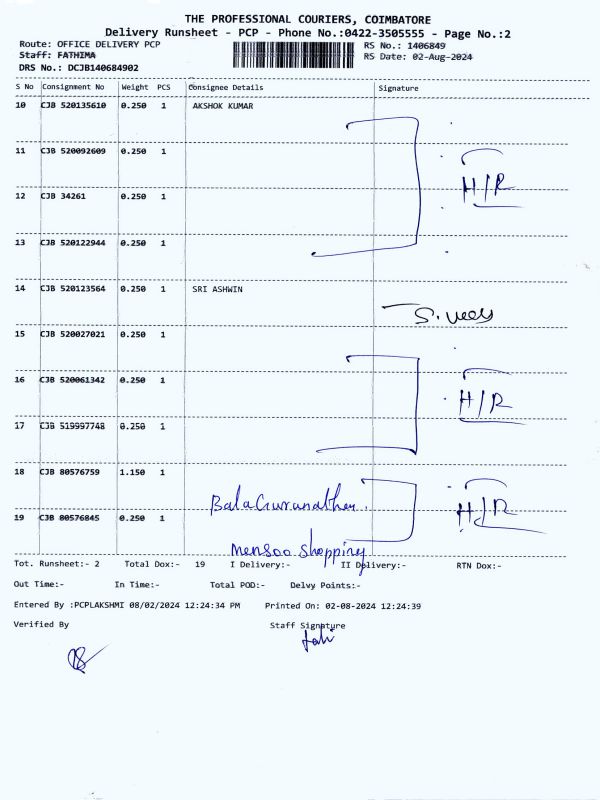 THE PROFESSIONAL COURIERS, COIMBATORE
Delivery Runsheet - PCP - Phone No.:0422-3505555 - Page No.:2
Route: OFFICE DELIVERY PCP RS No.: 1406849
Staff: FATHIMA RS Date: 02-Aug-2024
DRS No.: DCJB140684902
S No Consignment No Weight PCS Consignee Details Signature
10 CJB 520135610 0.250 1 AKSHOK KUMAR
11 CJB 520092609 0.250 1 H/R
12 CJB 34261 0.250 1
13 CJB 520122944 0.250 1
14 CJB 520123564 0.250 1 SRI ASHWIN
15 CJB 520027021 0.250 1
16 CJB 520061342 0.250 1 H/R
17 CJB 519997748 0.250 1
18 CJB 80576759 1.150 1
19 CJB 80576845 0.250 1 H/R
Shopping
Tot. Runsheet:- 2 Total Dox:- 19 I Delivery:- II Delivery:- RTN Dox:-
Out Time:- In Time:- Total POD:- Delvy Points:-
Entered By :PCPLAKSHMI 08/02/2024 12:24:34 PM Printed On: 02-08-2024 12:24:39
Verified By Staff Signature